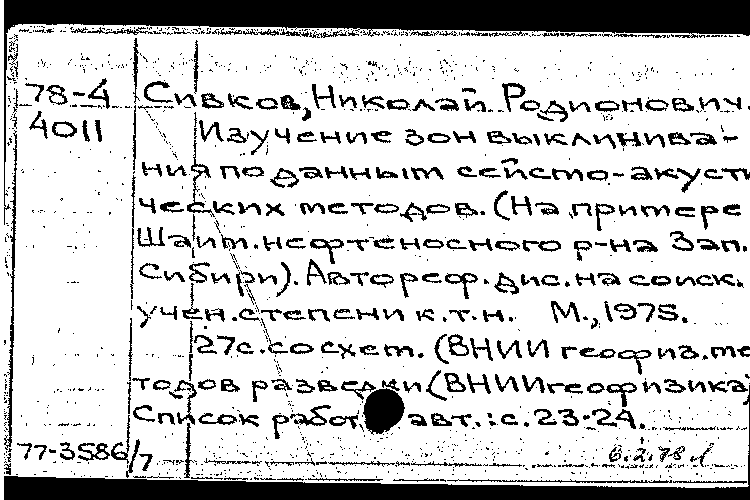 78-4 Сивков, Николай Родионович.
4011 Изучение зон выклинива-
ния по данным сейсмо-акусти
ческих методов. (На примере
Шаим. нефтеносного р-на Зап.
Сибири). Автореф. дис. на соиск.
учен. степени к.т.н. М., 1975.
27с. со схем. (ВНИИ геофиз. ме
тодов разведки (ВНИИгеофизика)
Список работ авт.: с. 23-24.
77-3586/7 6.2.78